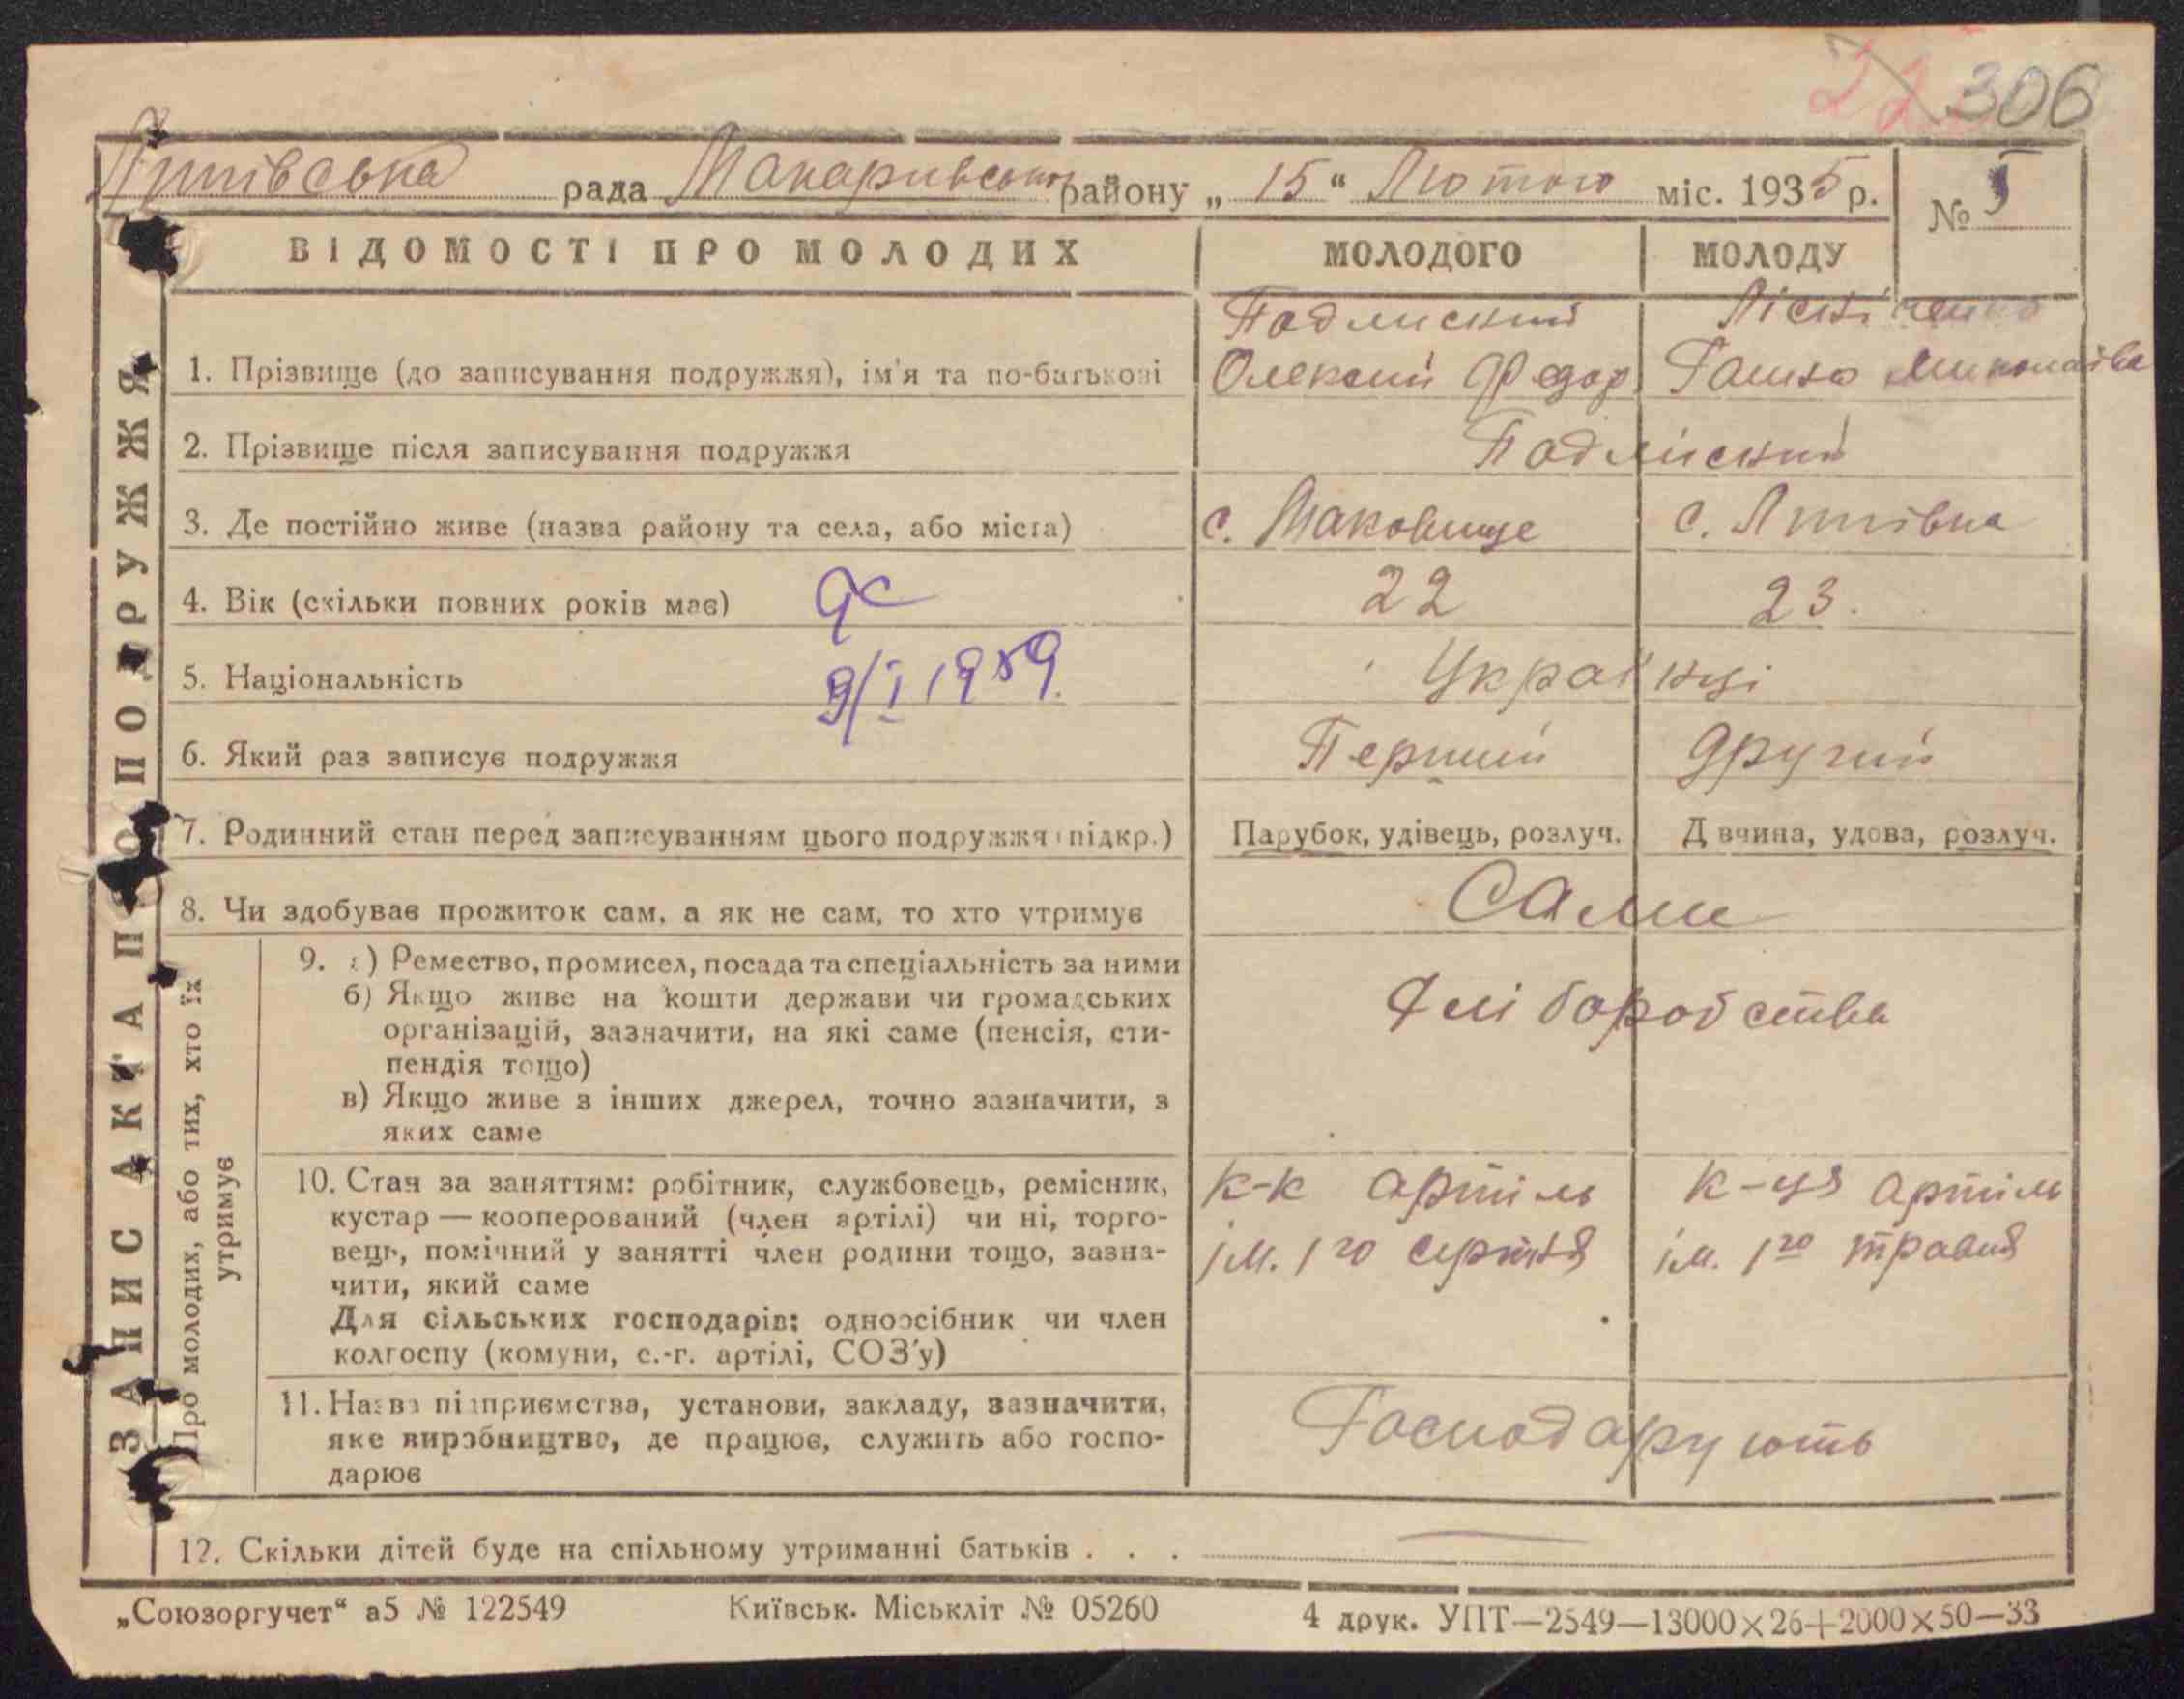 22 306
Липівська рада Макарівського району „ 15 “ Лютого міс. 1935 р.
№ 5
ЗАПИС АКТА ПРО ПОДРУЖЖЯ
ВІДОМОСТІ ПРО МОЛОДИХ
МОЛОДОГО
МОЛОДУ
1. Прізвище (до записування подружжя), ім'я та по-батькові
Олексій Федор
Ганна Миколаївна
2. Прізвище після записування подружжя
3. Де постійно живе (назва району та села, або міста)
с. Маковище
с. Липівка
4. Вік (скільки повних років має)
22
23.
5. Національність
9/I 1959.
Українці
6. Який раз записує подружжя
Перший
Другий
7. Родинний стан перед записуванням цього подружжя (підкр.)
Парубок, удівець, розлуч.
Дівчина, удова, розлуч.
8. Чи здобуває прожиток сам, а як не сам, то хто утримує
Сами
Про молодих, або тих, хто їх
утримує
9. а) Ремество, промисел, посада та спеціальність за ними
б) Якщо живе на кошти держави чи громадських
організацій, зазначити, на які саме (пенсія, сти-
пендія тощо)
в) Якщо живе з інших джерел, точно зазначити, з
яких саме
Хліборобства
10. Стан за заняттям: робітник, службовець, ремісник,
кустар — кооперований (член артілі) чи ні, торго-
вець, помічний у занятті член родини тощо, зазна-
чити, який саме
Для сільських господарів: одноосібник чи член
колгоспу (комуни, с.-г. артілі, СОЗ'у)
к-к артіль
ім. 1го серпня
к-ця артіль
ім. 1го травня
11. Назва підприємства, установи, закладу, зазначити,
яке виробництво, де працює, служить або госпо-
дарює
Господарують
12. Скільки дітей буде на спільному утриманні батьків . . .
—
„Союзоргучет“ а5 № 122549
Київськ. Міськліт № 05260
4 друк. УПТ—2549—13000×26+2000×50—33